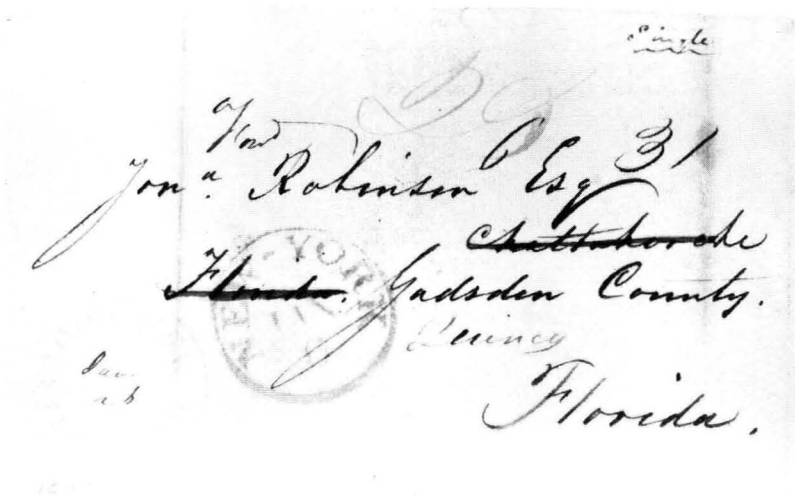 Single
Jonª. Robinson Esq
6
31
Chattahoochee
Florida. Gadsden County.
NEW-YORK
Quincy
Florida.